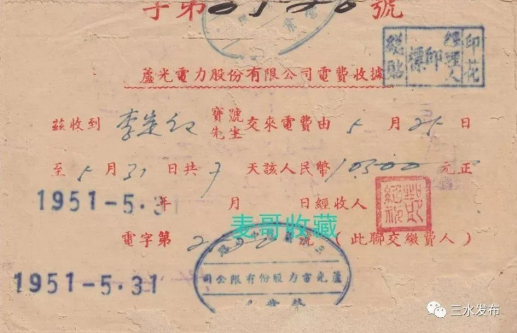 字第 號
印花 經理人 印 標 總貼
蘆光電力股份有限公司電費收據
茲收到 寶號 先生 交來電費由 5 月 25 日
至 5 月 31 日共 7 天該人民幣 10500 元正
1951-5.3 年 月 日經收人
麦哥收藏
電字第 號 (此聯交繳費人)
蘆光電力股份有限公司
1951-5.31
三水发布